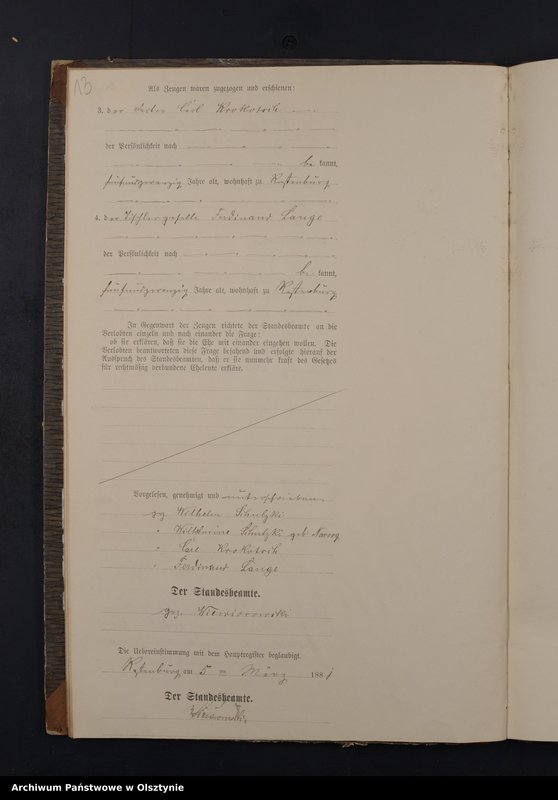 13
Als Zeugen waren zugezogen und erschienen:
3. der Carl Krokotsch
der Persönlichkeit nach
be kannt,
fünfundzwanzig Jahre alt, wohnhaft zu Rastenburg
4. der Tischlergeselle Ferdinand Lange
der Persönlichkeit nach
be kannt,
fünfundzwanzig Jahre alt, wohnhaft zu Rastenburg
In Gegenwart der Zeugen richtete der Standesbeamte an die
Verlobten einzeln und nach einander die Frage:
ob sie erklären, daß sie die Ehe mit einander eingehen wollen. Die
Verlobten beantworteten diese Frage bejahend und erfolgte hierauf der
Ausspruch des Standesbeamten, daß er sie nunmehr kraft des Gesetzes
für rechtmäßig verbundene Eheleute erkläre.
Vorgelesen, genehmigt und unterschrieben
gez. Wilhelm Schulzki
" Wilhelmine Schulzki geb.
" Carl Krokotsch
" Ferdinand Lange
Der Standesbeamte.
gez.
Die Uebereinstimmung mit dem Hauptregister beglaubigt.
Rastenburg am 5 ten März 1881
Der Standesbeamte.
Archiwum Państwowe w Olsztynie